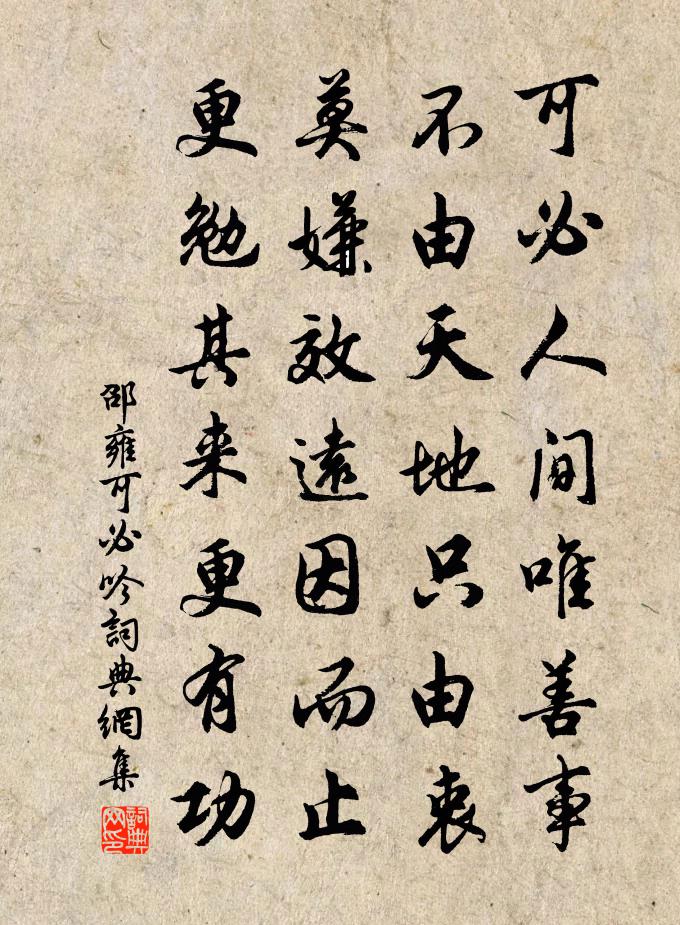 可必人間唯善事
不由天地只由衷
莫嫌效遠因而止
更勉其来更有功
邵雍可必吟詞典網集
詞典网印